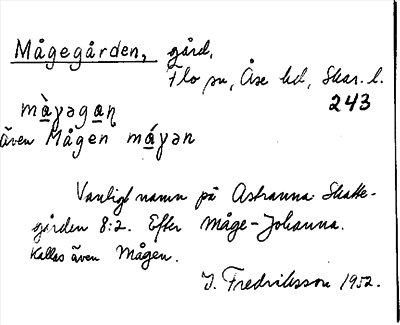 Mågegården, gård,
Flo sn, Åse hd, Skar. l.
243
màγəgaṇ
även Mågen máγən
Vanligt namn på Astranna Skatte-
gården 8:2. Efter Måge-Johanna.
Kallas även Mågen.
J. Fredriksson 1952.